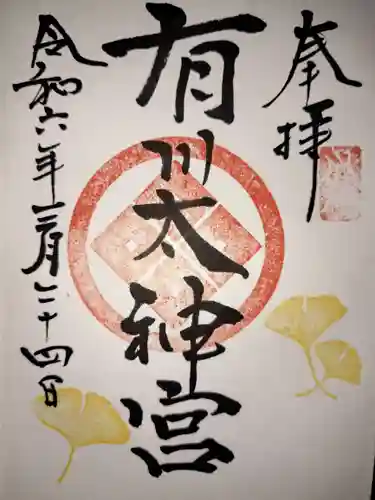 奉拝
有川太神宮
令和六年十一月二十四日